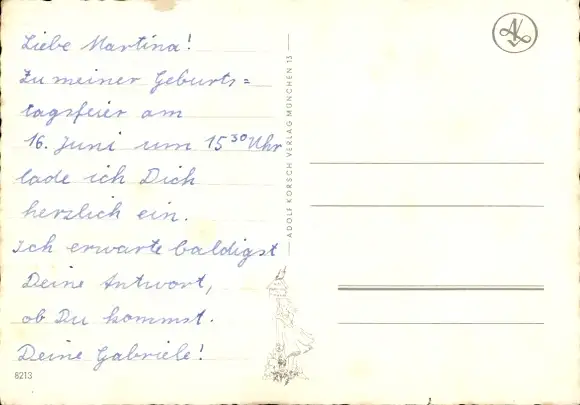 Liebe Martina!
Zu meiner Geburts=
tagsfeier am
16. Juni um 15³⁰ Uhr
lade ich Dich
herzlich ein.
Ich erwarte baldigst
Deine Antwort,
ob Du kommst.
Deine Gabriele!
8213
ADOLF KORSCH VERLAG MÜNCHEN 13